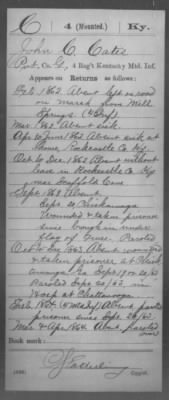 C 4 (Mounted.) Ky.
John C. Cates
Pvt. Co. G, 4 Reg't Kentucky Mtd. Inf.
Appears on Returns as follows:
Feb. 1862 Absent left on road
on march from Mill
Springs
Mar. 1862 Absent sick
Apr. to June 1862 Absent sick at
Home, Rockcastle Co. Ky
Oct. to Dec. 1862 Absent without
leave in Rockcastle Co. Ky
near Scaffold Cane
Sept. 1863 Absent
Sept. 20 Chickamauga
Wounded & taken prisoner
since brought in under
flag of truce. Paroled
Oct. to 1863. Absent wounded
& taken prisoner at Chick
amauga Ga Sept 19 or 20/63
Paroled Sept. 20/63. in
Hosp. at Chattanooga
Feb. 1864 Absent paroled
prisoner since Sept. 20/63.
Mar & Apr. 1864 Absent, paroled
Book mark:
Copyist.